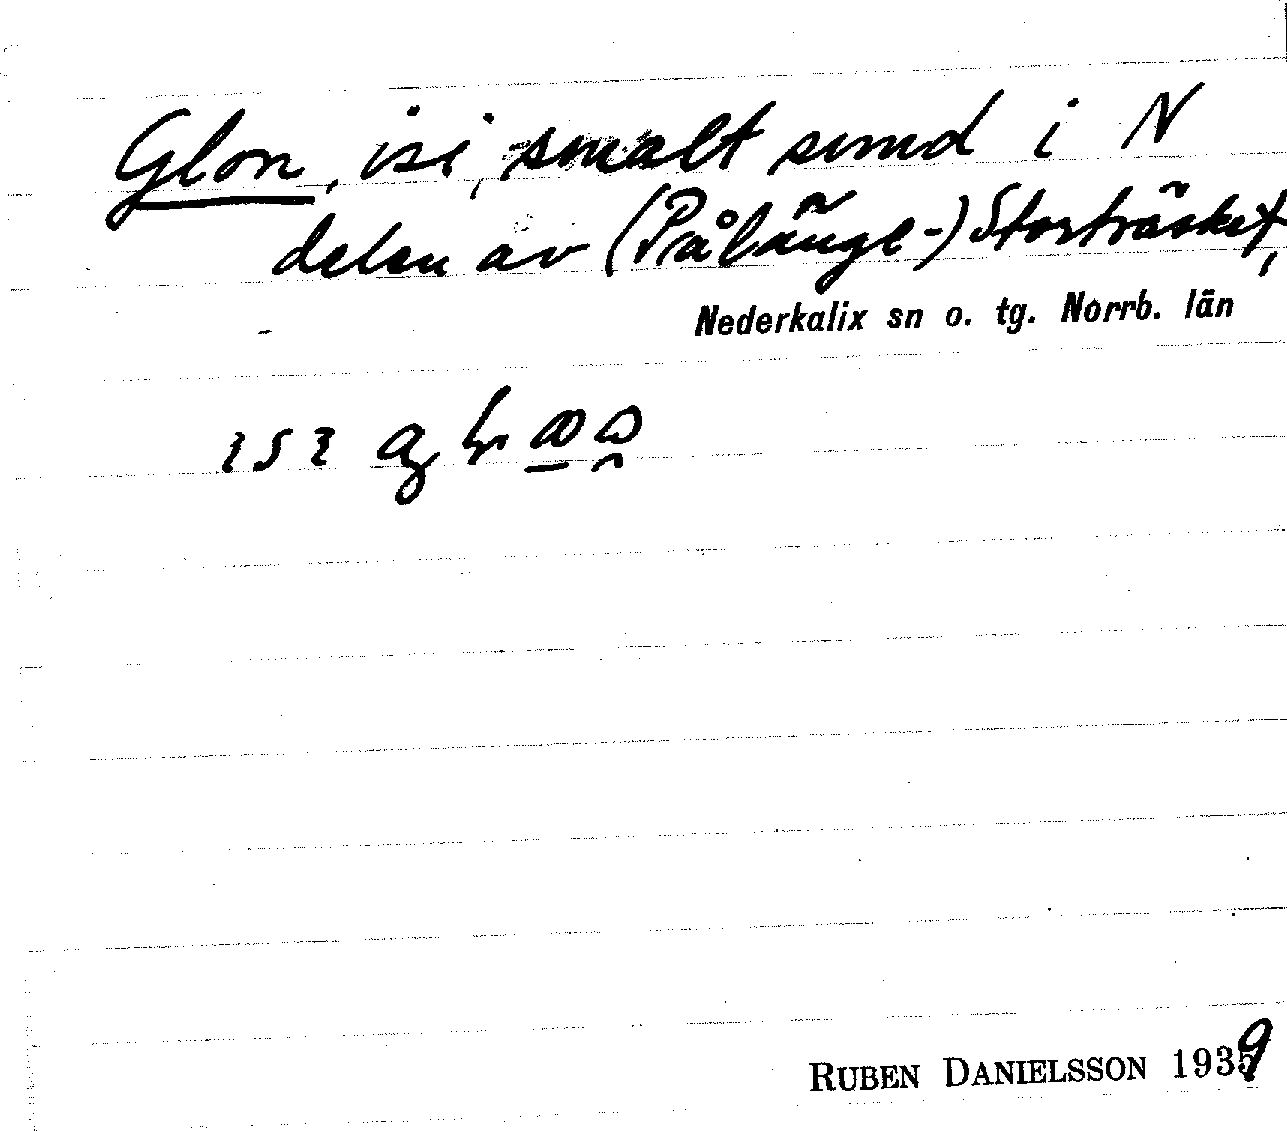 Glon, isi, smalt sund i N
delen av (Pålänge-) Storträsket,
Nederkalix sn o. tg. Norrb. län
RUBEN DANIELSSON 1939